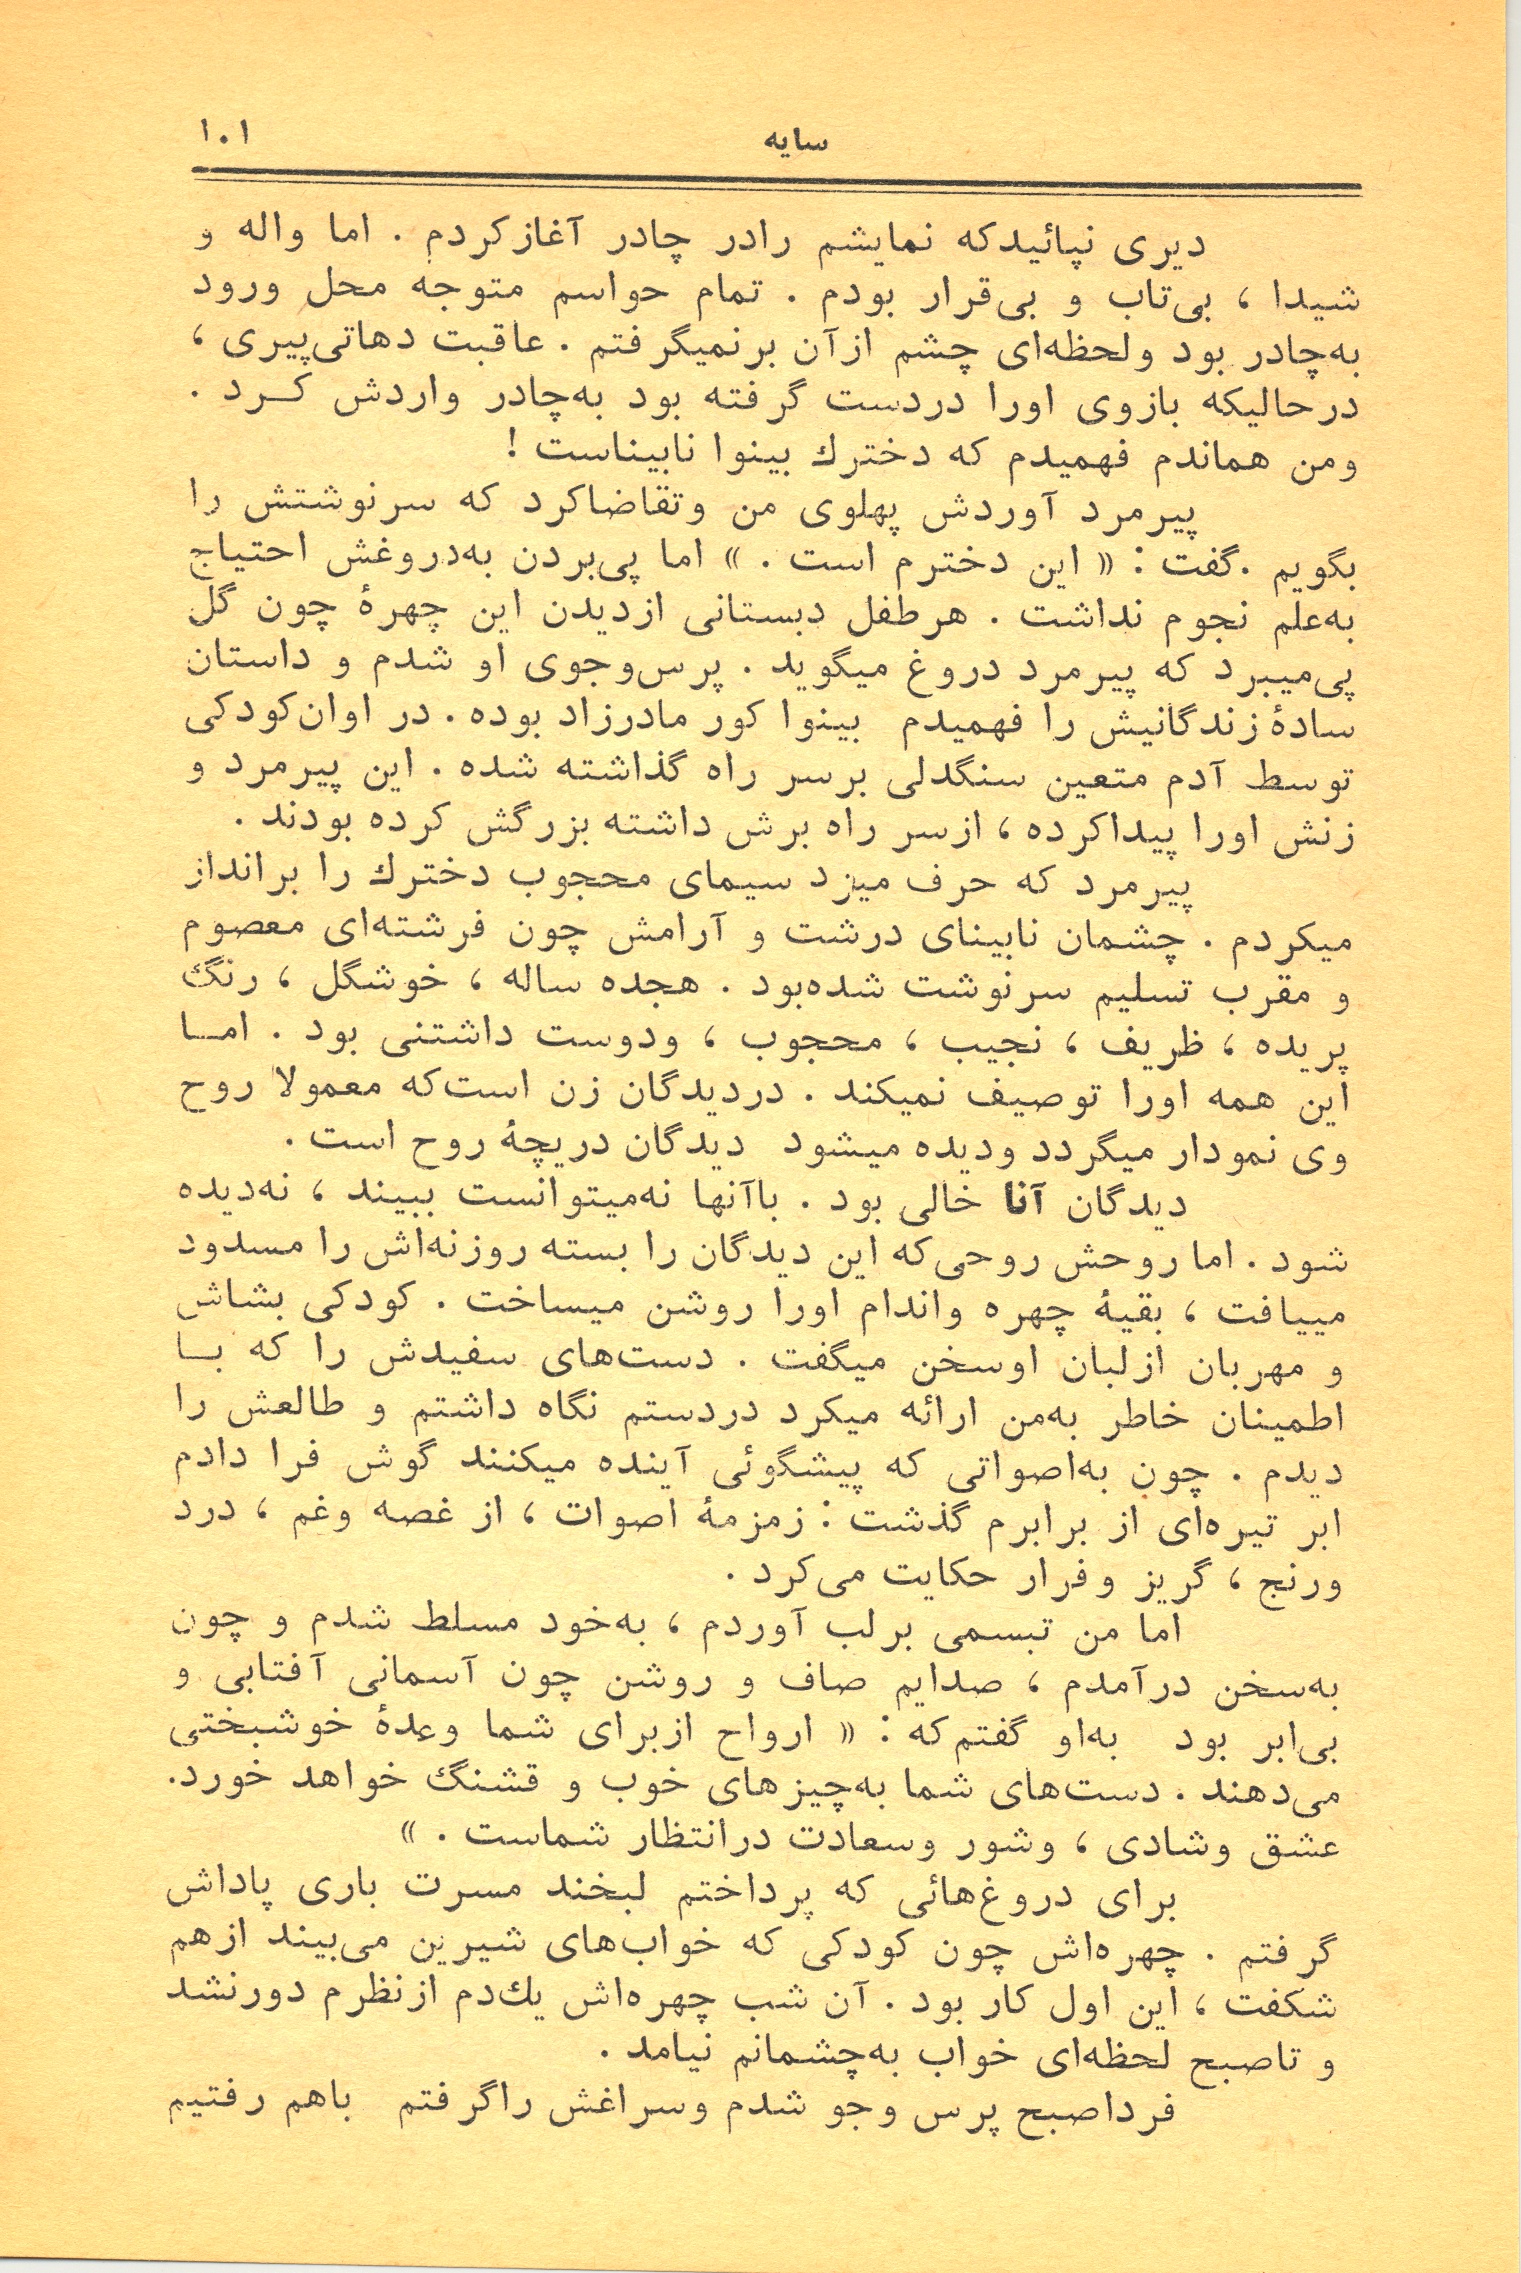 سایه
۱۰۱
دیری نپائیدکه نمایشم رادر چادر آغازکردم . اما واله و
شیدا ، بی‌تاب و بی‌قرار بودم . تمام حواسم متوجه محل ورود
به‌چادر بود ولحظه‌ای چشم ازآن برنمیگرفتم . عاقبت دهاتی‌پیری ،
درحالیکه بازوی اورا دردست گرفته بود به‌چادر واردش کـرد .
ومن هماندم فهمیدم که دخترك بینوا نابیناست !
پیرمرد آوردش پهلوی من وتقاضاکرد که سرنوشتش را
بگویم .گفت : « این دخترم است . » اما پی‌بردن به‌دروغش احتیاج
به‌علم نجوم نداشت . هرطفل دبستانی ازدیدن این چهرهٔ چون گل
پی‌میبرد که پیرمرد دروغ میگوید . پرس‌وجوی او شدم و داستان
سادهٔ زندگانیش را فهمیدم بینوا کور مادرزاد بوده . در اوان‌کودکی
توسط آدم متعین سنگدلی برسر راه گذاشته شده . این پیرمرد و
زنش اورا پیداکرده ، ازسر راه برش داشته بزرگش کرده بودند .
پیرمرد که حرف میزد سیمای محجوب دخترك را برانداز
میکردم . چشمان نابینای درشت و آرامش چون فرشته‌ای معصوم
و مقرب تسلیم سرنوشت شده‌بود . هجده ساله ، خوشگل ، رنگ
پریده ، ظریف ، نجیب ، محجوب ، ودوست داشتنی بود . امـا
این همه اورا توصیف نمیکند . دردیدگان زن است‌که معمولا روح
وی نمودار میگردد ودیده میشود دیدگان دریچهٔ روح است .
دیدگان آنا خالی بود . باآنها نه‌میتوانست ببیند ، نه‌دیده
شود . اما روحش روحی‌که این دیدگان را بسته روزنه‌اش را مسدود
مییافت ، بقیهٔ چهره واندام اورا روشن میساخت . کودکی بشاش
و مهربان ازلبان اوسخن میگفت . دست‌های سفیدش را که بـا
اطمینان خاطر به‌من ارائه میکرد دردستم نگاه داشتم و طالعش را
دیدم . چون به‌اصواتی که پیشگوئی آینده میکنند گوش فرا دادم
ابر تیره‌ای از برابرم گذشت : زمزمهٔ اصوات ، از غصه وغم ، درد
ورنج ، گریز وفرار حکایت می‌کرد .
اما من تبسمی برلب آوردم ، به‌خود مسلط شدم و چون
به‌سخن درآمدم ، صدایم صاف و روشن چون آسمانی آفتابی و
بی‌ابر بود به‌او گفتم‌که : « ارواح ازبرای شما وعدهٔ خوشبختی
می‌دهند . دست‌های شما به‌چیزهای خوب و قشنگ خواهد خورد.
عشق وشادی ، وشور وسعادت درانتظار شماست . »
برای دروغ‌هائی که پرداختم لبخند مسرت باری پاداش
گرفتم . چهره‌اش چون کودکی که خواب‌های شیرین می‌بیند ازهم
شکفت ، این اول کار بود . آن شب چهره‌اش یك‌دم ازنظرم دورنشد
و تاصبح لحظه‌ای خواب به‌چشمانم نیامد .
فرداصبح پرس وجو شدم وسراغش راگرفتم باهم رفتیم